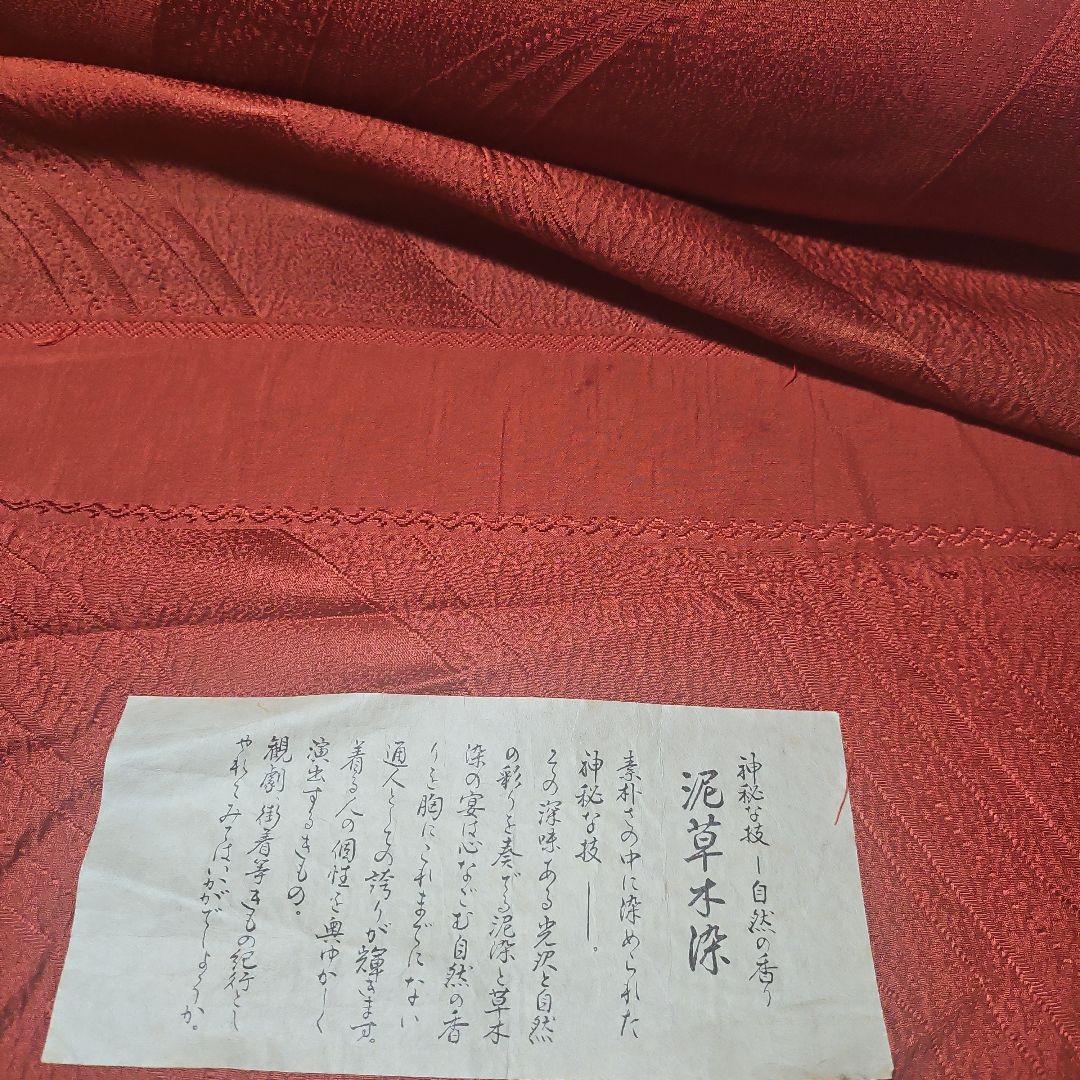 神秘な技ー自然の香り
泥草木染
素朴さの中に染められた
神秘な技――。
その深味ある光沢と自然
の彩りを奏でる泥染と草木
染の宴は心なごむ自然の香
りを胸にこれまでにない
通人としての誇りが輝きます。
着る人の個性を奥ゆかしく
演出するきもの。
観劇 街着等きもの紀行とし
やれてみてはいかがでしょうか。